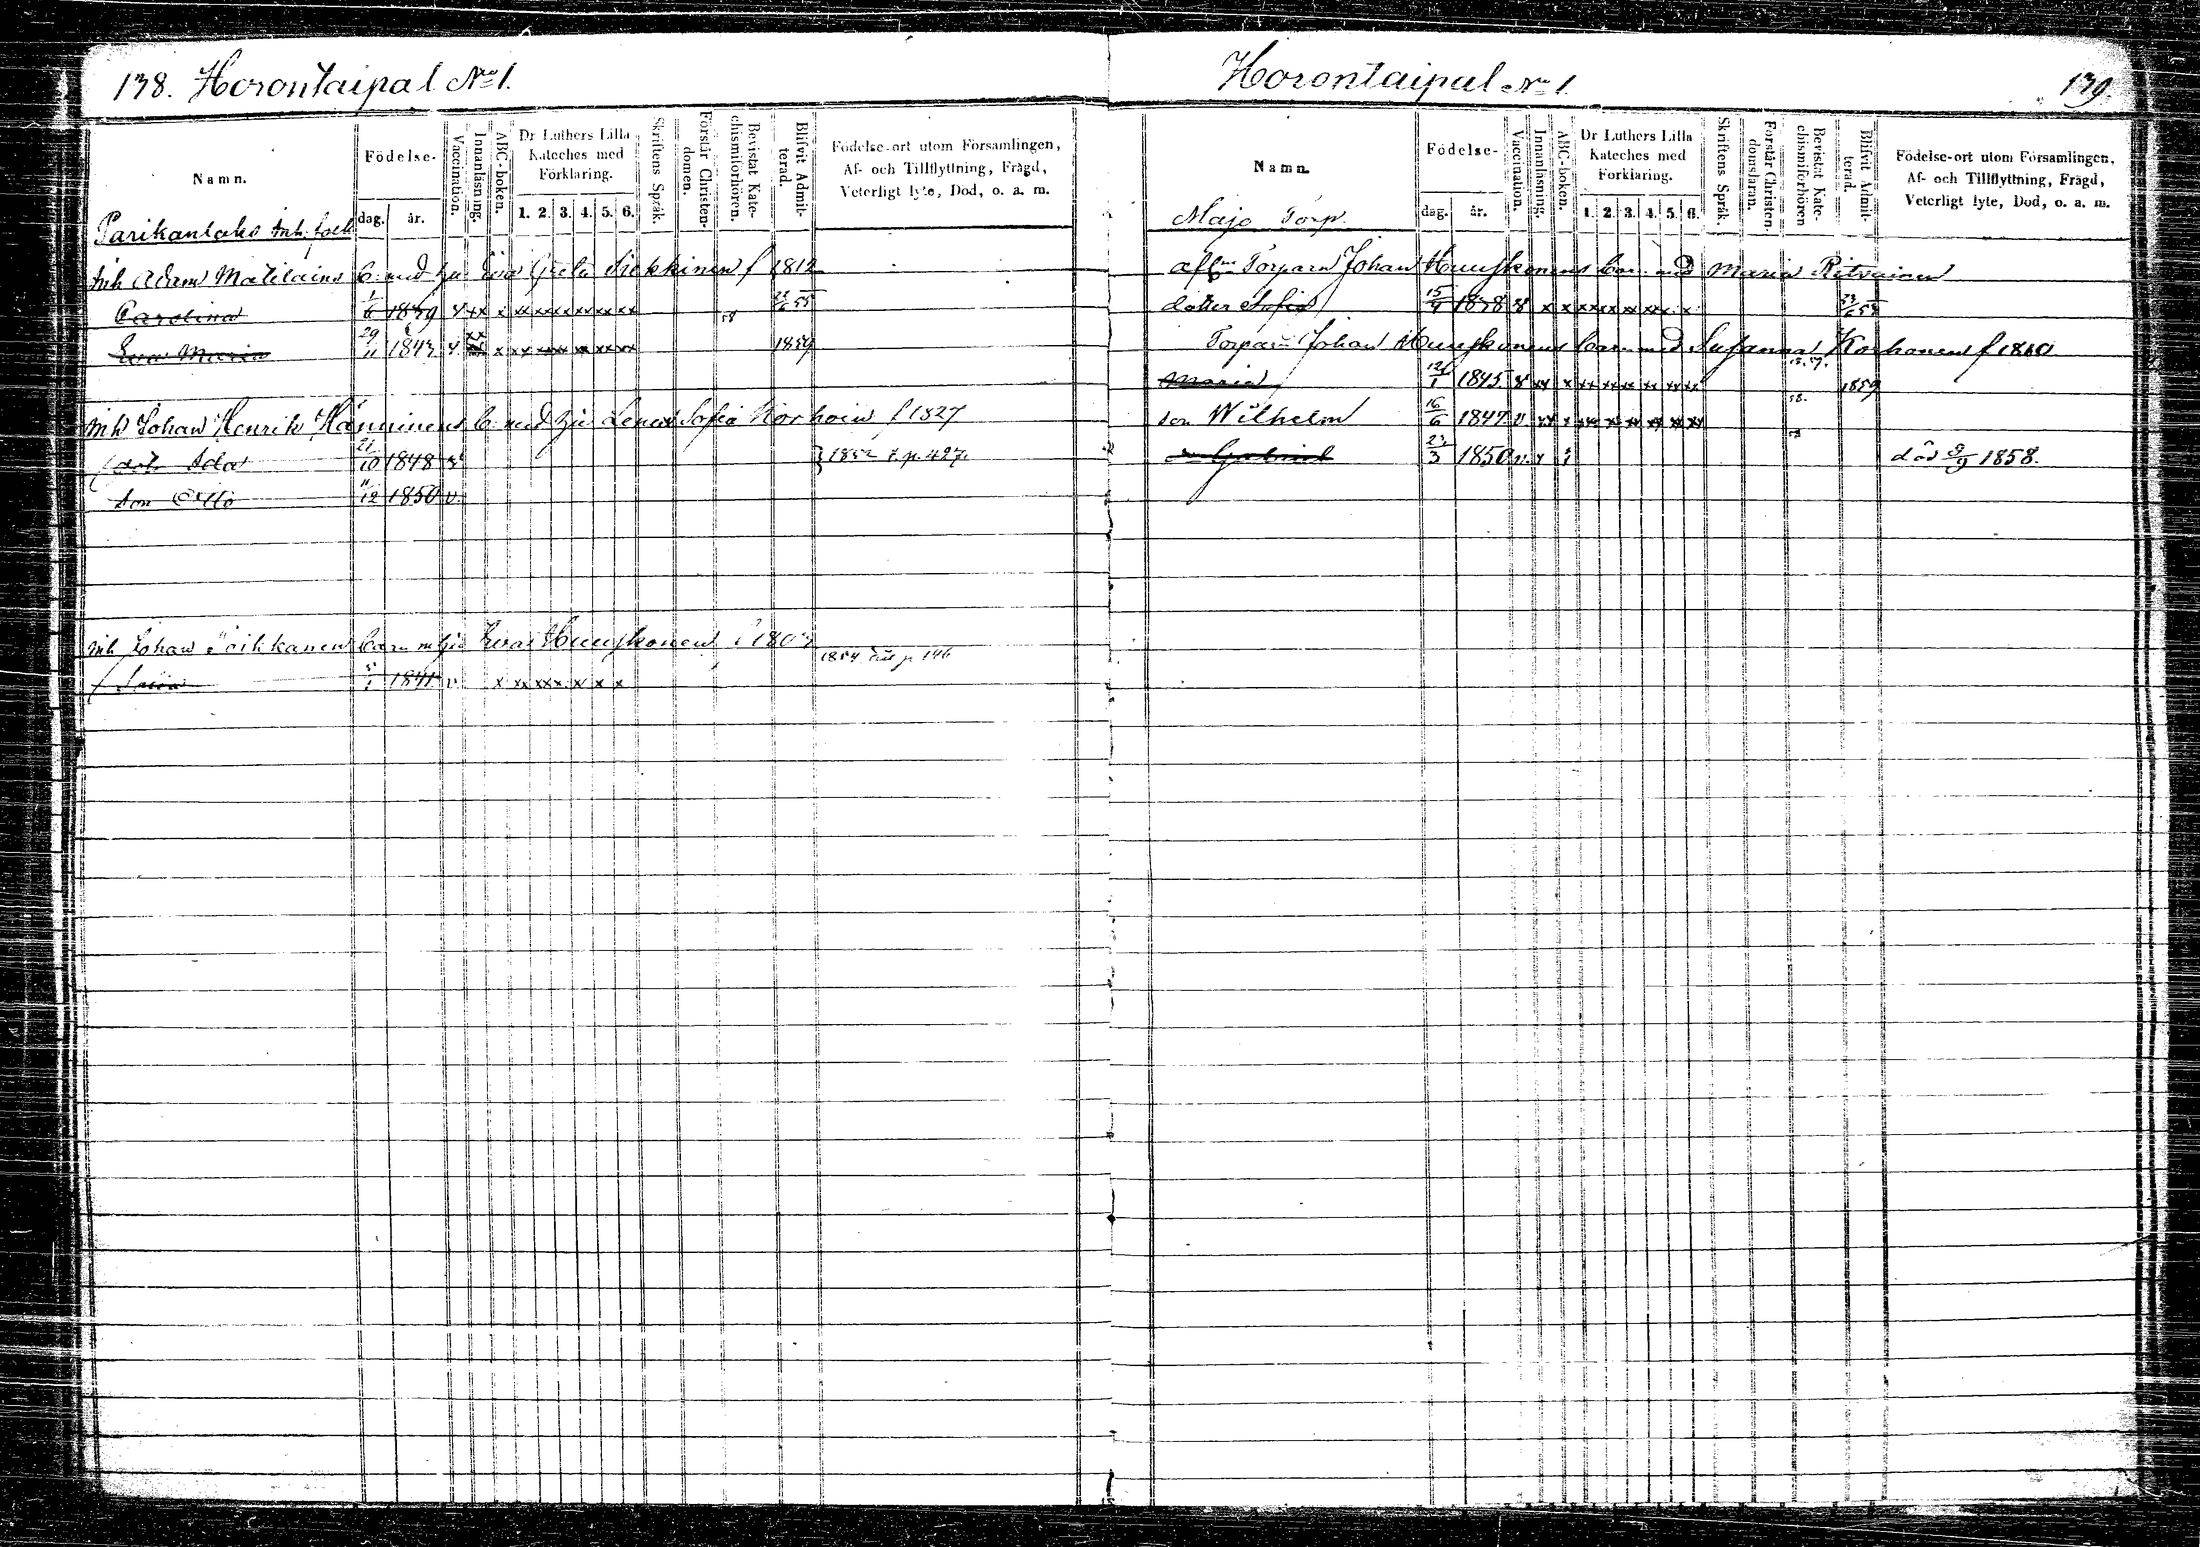 138. Horontaipal No 1.
Namn.
Födelse-
dag. år.
Vaccination.
Innanläsning.
ABC-boken.
Dr Luthers Lilla Kateches med Förklaring.
1. 2. 3. 4. 5. 6.
Skriftens Språk.
Förstår Christendomen.
Bevistat Katechismiförhören.
Blifvit Admitterad.
Födelse-ort utom Församlingen,
Af- och Tillflyttning, Frägd,
Veterligt lyte, Död, o. a. m.
Parikanlaks Inh. folk
Inh Adam Matilains b. med hu Eva Greta f 1812
Carolina 1/6 1839 v xx x xx xx xx xx xx xx 58 55
Eva Maria 29/11 1843 v x xx xx xx xx xx 1859
Inh Johan Henrik Hänninens b. med hu Lena Sofia Korhoin f 1827
dot. Ida 21/10 1848 v } 1852 t. p. 427.
son Otto 11/12 1850 v.
Inh Johan barn m hu Eva Huuskonen f 1803
1854 p 146
1841 v x xx xx x x x
Horontaipal No 1. 139.
Namn.
Födelse-
dag. år.
Vaccination.
Innanläsning.
ABC-boken.
Dr Luthers Lilla Kateches med Förklaring.
1. 2. 3. 4. 5. 6.
Skriftens Språk.
Förstår Christendomsläran.
Bevistat Katechismiförhören
Blifvit Admitterad.
Födelse-ort utom Församlingen,
Af- och Tillflyttning, Frägd,
Veterligt lyte, Död, o. a. m.
Majo Torp.
Afl. Torparn Johan Huuskonens barn med Maria
dotter Sofia 15/4 1838 v x x xx xx xx x
Torparn Johan Huuskonens barn med Susanna Korhonen f 1810
Maria 12/1 1845 v xx x xx xx xx xx xx 1859
son Wilhelm 16/6 1847 v. xx x xx xx xx xx xx xx 58.
Gabriel 23/3 1850 v. x död 3/9 1858.